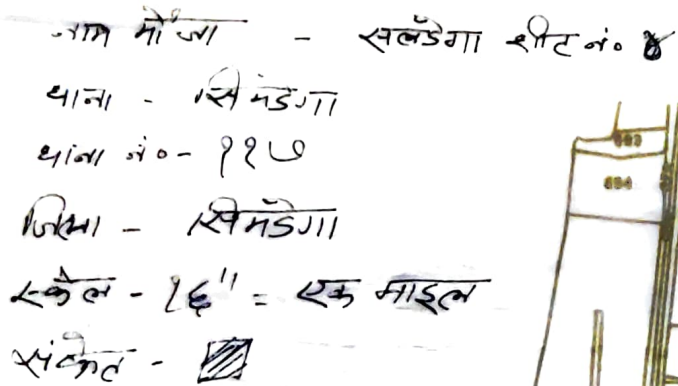 नाम मौजा - सलडेगा शीट नं० ४
थाना - सिमडेगा
थाना नं० - ११७
जिला - सिमडेगा
स्केल - १६" = एक माइल
संकेत -